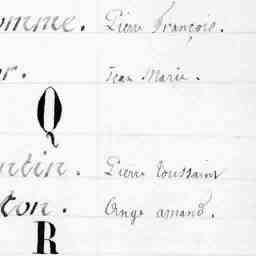 omme. Pierre François.
r. Jean Marie.
Q
ntin. Pierre toussaint
ton. Ange amand.
R